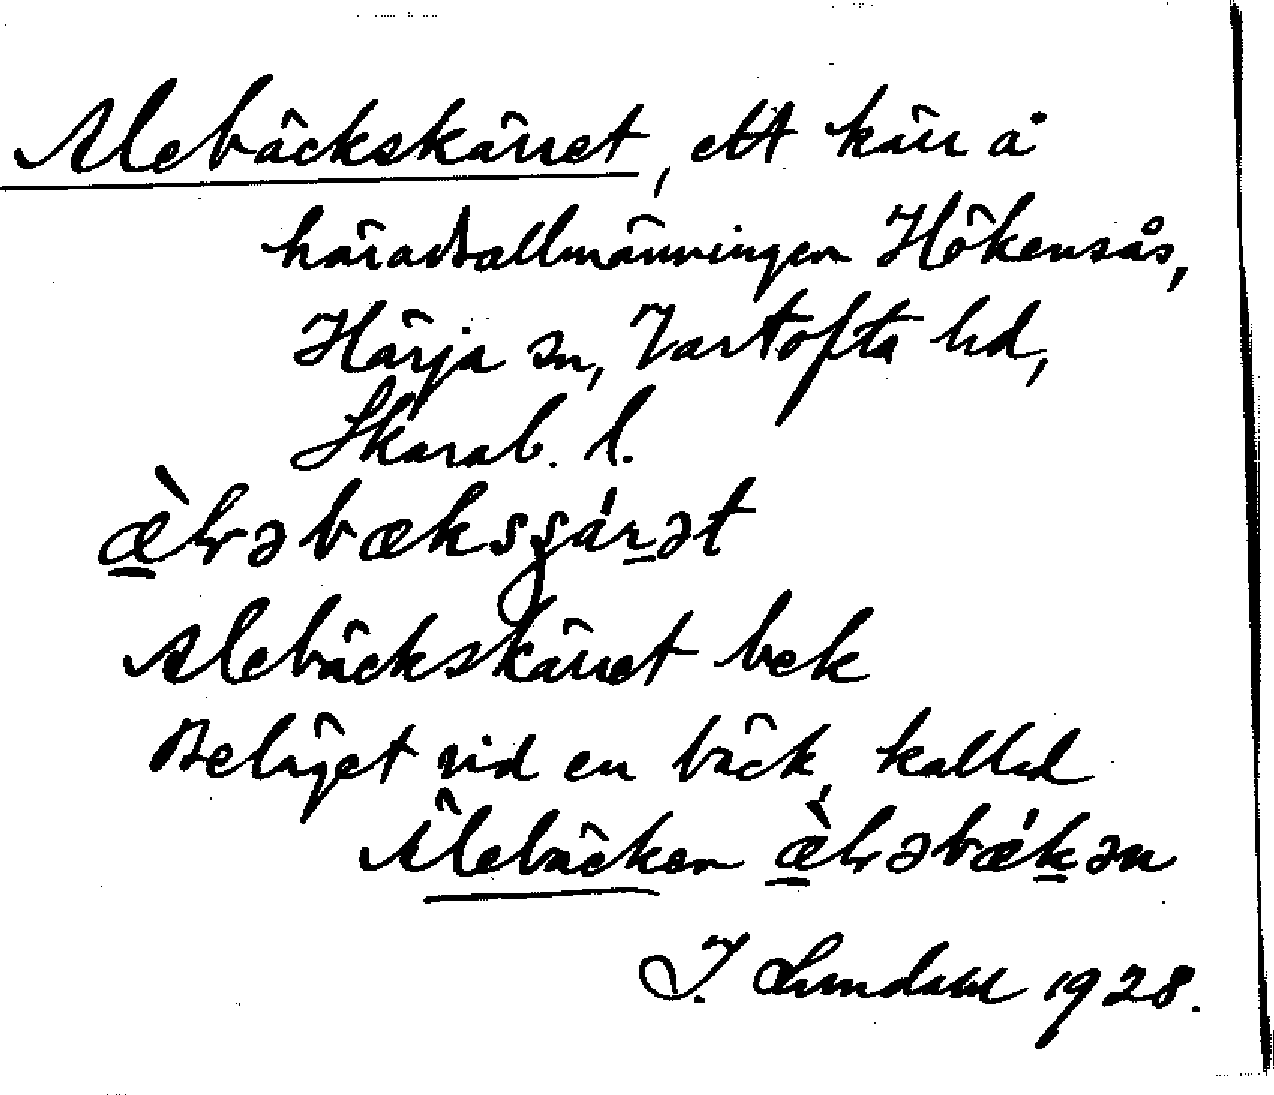 Alebäckskärret, ett kärr å
häradsallmänningen Hökensås,
Härja sn, Vartofta hd,
Skarab. l.
æ̀lrəbæksʂárət
Alebäckskärret bek
Beläget vid en bäck, kallad
Älebäcken æ̀lrəbǽkən
I. Lundahl 1928.